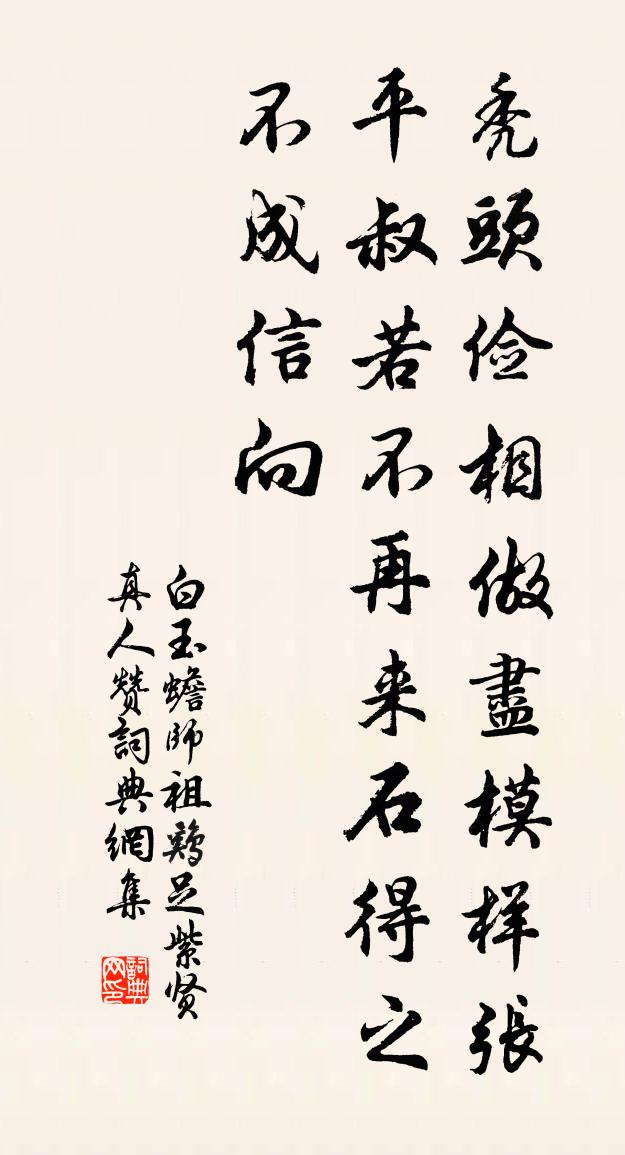 秃頭俭相做盡模样張
平叔若不再来石得之
不成信向
白玉蟾师祖鶏足紫贤
真人赞詞典網集
詞典网印